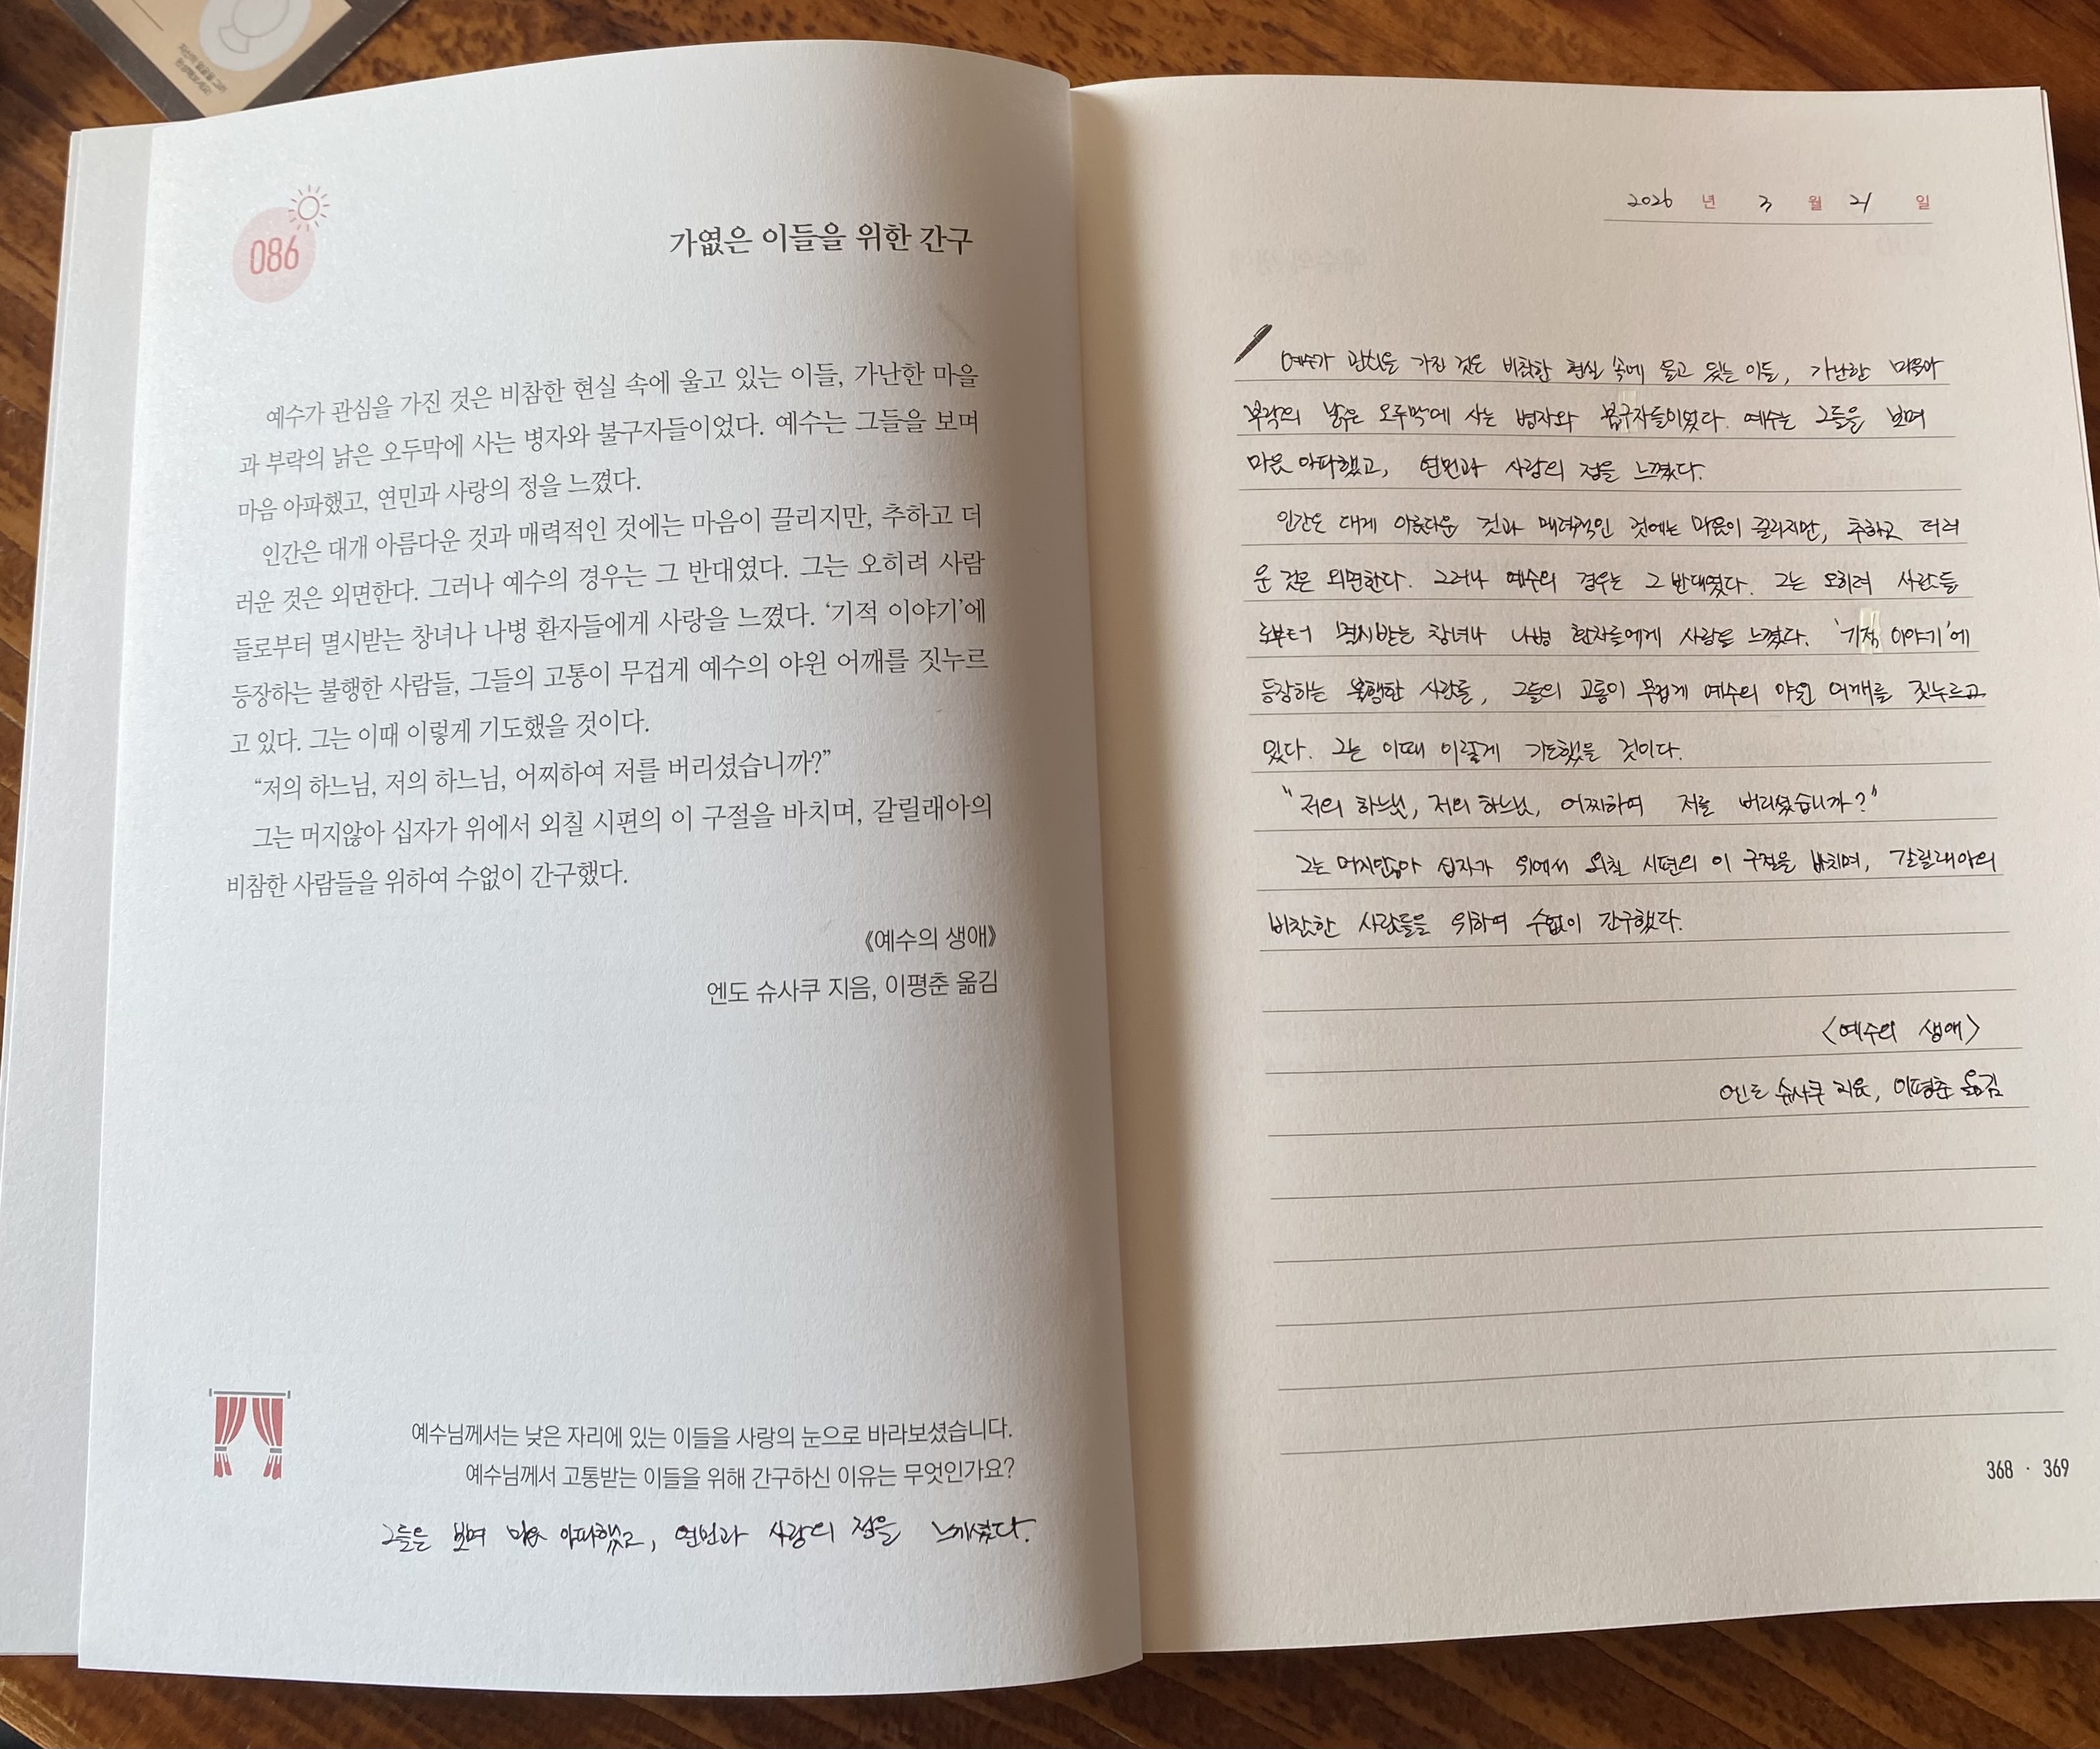 086
가엾은 이들을 위한 간구
예수가 관심을 가진 것은 비참한 현실 속에 울고 있는 이들, 가난한 마을
과 부락의 낡은 오두막에 사는 병자와 불구자들이었다. 예수는 그들을 보며
마음 아파했고, 연민과 사랑의 정을 느꼈다.
인간은 대개 아름다운 것과 매력적인 것에는 마음이 끌리지만, 추하고 더
러운 것은 외면한다. 그러나 예수의 경우는 그 반대였다. 그는 오히려 사람
들로부터 멸시받는 창녀나 나병 환자들에게 사랑을 느꼈다. ‘기적 이야기’에
등장하는 불행한 사람들, 그들의 고통이 무겁게 예수의 야윈 어깨를 짓누르
고 있다. 그는 이때 이렇게 기도했을 것이다.
“저의 하느님, 저의 하느님, 어찌하여 저를 버리셨습니까?”
그는 머지않아 십자가 위에서 외칠 시편의 이 구절을 바치며, 갈릴래아의
비참한 사람들을 위하여 수없이 간구했다.
《예수의 생애》
엔도 슈사쿠 지음, 이평춘 옮김
예수님께서는 낮은 자리에 있는 이들을 사랑의 눈으로 바라보셨습니다.
예수님께서 고통받는 이들을 위해 간구하신 이유는 무엇인가요?
그들을 보며 마음 아파했고, 연민과 사랑의 정을 느끼셨다.
2026 년 3 월 21 일
예수가 관심을 가진 것은 비참한 현실 속에 울고 있는 이들, 가난한 마을과
부락의 낡은 오두막에 사는 병자와 불구자들이었다. 예수는 그들을 보며
마음 아파했고, 연민과 사랑의 정을 느꼈다.
인간은 대게 아름다운 것과 매력적인 것에는 마음이 끌리지만, 추하고 더러
운 것은 외면한다. 그러나 예수의 경우는 그 반대였다. 그는 오히려 사람들
로부터 멸시받는 창녀나 나병 환자들에게 사랑을 느꼈다. ‘기적 이야기’에
등장하는 불행한 사람들, 그들의 고통이 무겁게 예수의 야윈 어깨를 짓누르고
있다. 그는 이때 이렇게 기도했을 것이다.
"저의 하느님, 저의 하느님, 어찌하여 저를 버리셨습니까?"
그는 머지않아 십자가 위에서 외칠 시편의 이 구절을 바치며, 갈릴래아의
비참한 사람들을 위하여 수없이 간구했다.
〈예수의 생애〉
엔도 슈사쿠 지음, 이평춘 옮김
368 · 369